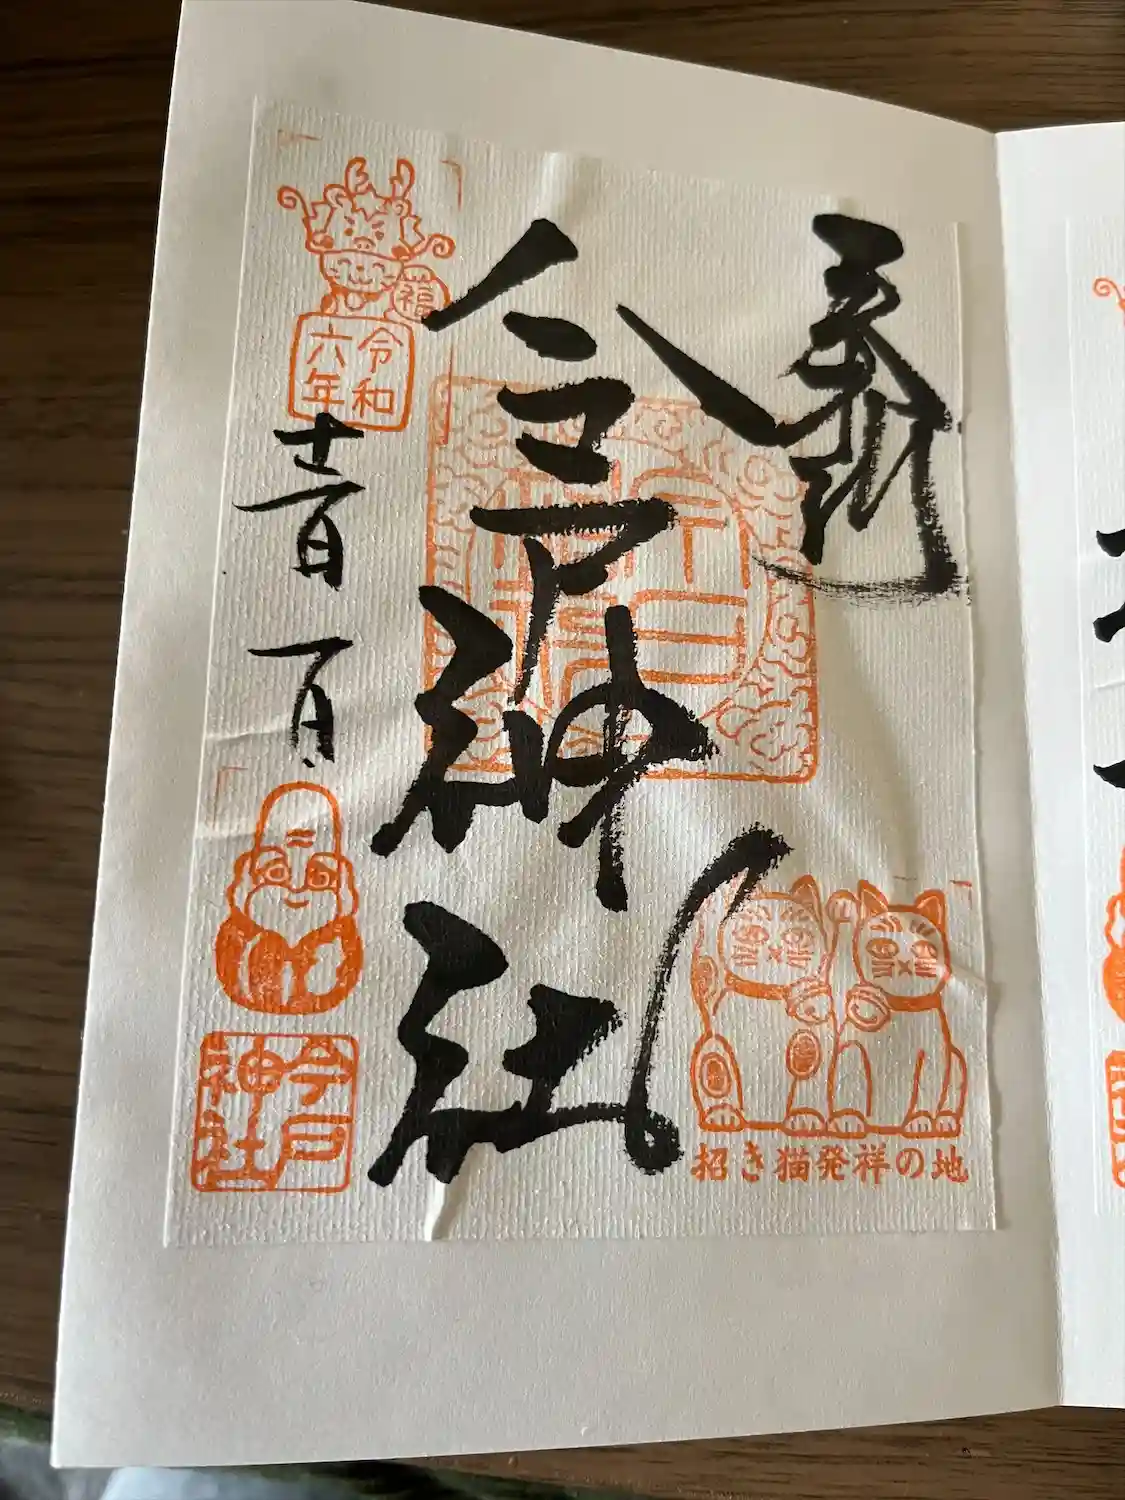 奉拝
今戸神社
福
令和
六年
十二月一日
今戸
神社
招き猫発祥の地